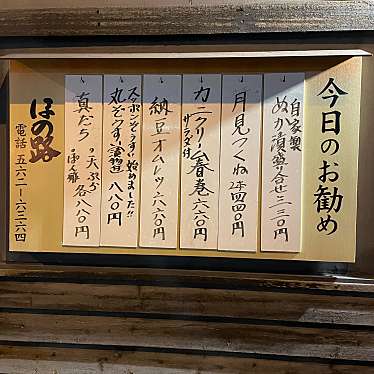 今日のお勧め
自家製
ぬか漬盛り合せ三三〇円
月見つくね2本四四〇円
カニクリーム春巻六六〇円
サラダ付
納豆オムレツ六六〇円
スッポンぞうすい始めました!!
丸ぞうすい 八八〇円
真だら の天ぷら
ぽん酢 各八八〇円
ほの路
電話 五六二一六三六四